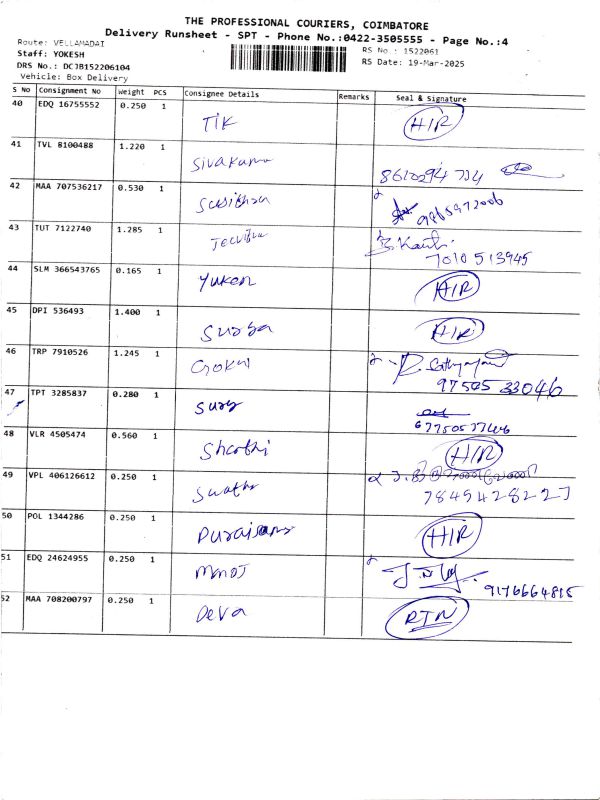 THE PROFESSIONAL COURIERS, COIMBATORE
Delivery Runsheet - SPT - Phone No.:0422-3505555 - Page No.:4
Route: VELLAMADAI
RS No : 1522061
Staff: YOKESH
RS Date: 19-Mar-2025
DRS No.: DCJB152206104
Vehicle: Box Delivery
S No Consignment No Weight PCS Consignee Details Remarks Seal & Signature
40 EDQ 16755552 0.250 1 TIK H/R
41 TVL 8100488 1.220 1 Sivakumar
42 MAA 707536217 0.530 1 9865972006
43 TUT 7122740 1.285 1 7010513945
44 SLM 366543765 0.165 1 Yuken H/R
45 DPI 536493 1.400 1 Surba H/R
46 TRP 7910526 1.245 1 Gokul 97505 33046
47 TPT 3285837 0.280 1 Sury
48 VLR 4505474 0.560 1 Sharthi H/R
49 VPL 406126612 0.250 1 Swathi 7849428227
50 POL 1344286 0.250 1 H/R
51 EDQ 24624955 0.250 1 Manoj 9176664815
52 MAA 708200797 0.250 1 Deva RTN